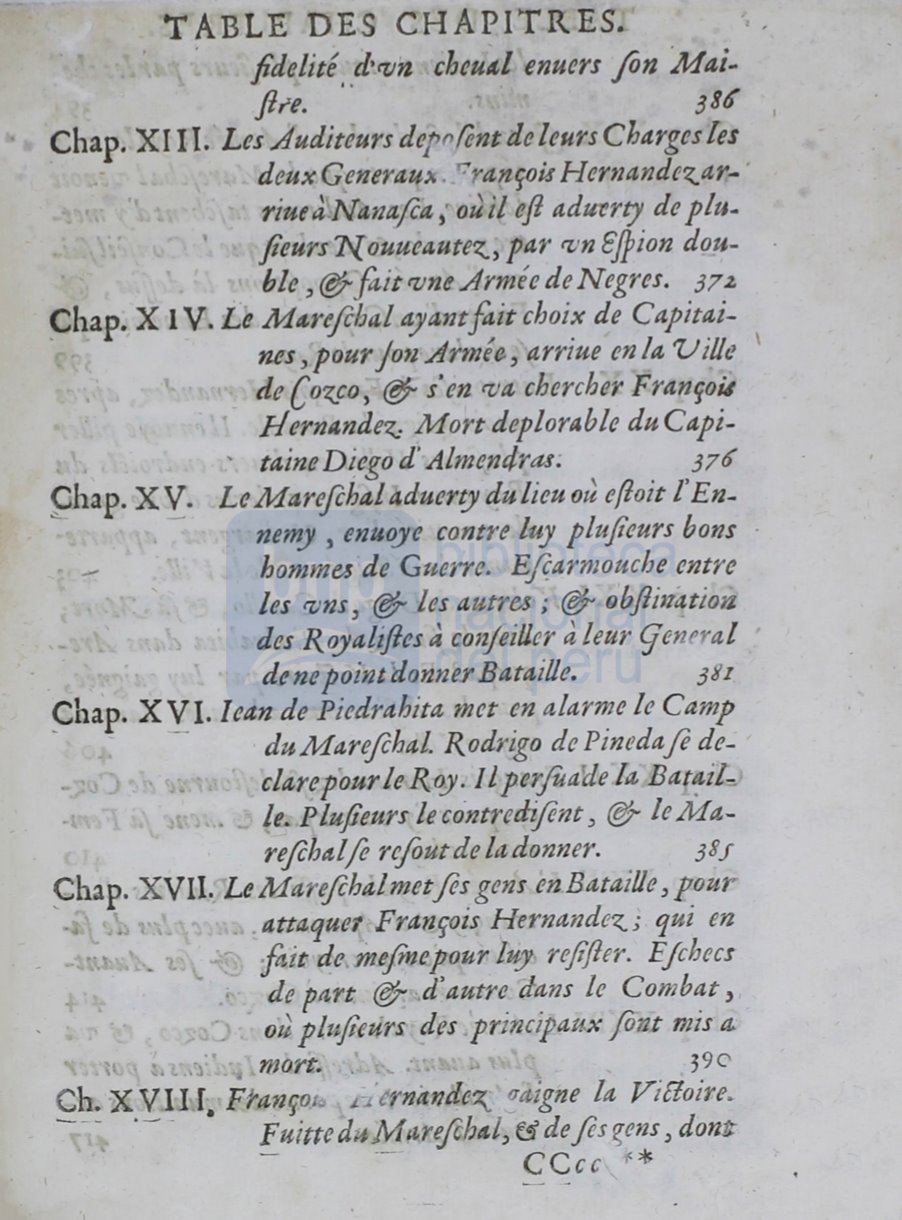 TABLE DES CHAPITRES.
fidelité d'vn cheual enuers ſon Mai-
ſtre. 386
Chap. XIII. Les Auditeurs depoſent de leurs Charges les
deux Generaux. François Hernandez ar-
riue à Nanaſca, où il eſt aduerty de plu-
ſieurs Nouueautez, par vn Eſpion dou-
ble, & fait vne Armée de Negres. 372
Chap. XIV. Le Mareſchal ayant fait choix de Capitai-
nes, pour ſon Armée, arriue en la Ville
de Cozco, & s'en va chercher François
Hernandez. Mort deplorable du Capi-
taine Diego d'Almendras. 376
Chap. XV. Le Mareſchal aduerty du lieu où eſtoit l'En-
nemy, enuoye contre luy pluſieurs bons
hommes de Guerre. Eſcarmouche entre
les vns, & les autres; & obſtination
des Royaliſtes à conſeiller à leur General
de ne point donner Bataille. 381
Chap. XVI. Iean de Piedrahita met en alarme le Camp
du Mareſchal. Rodrigo de Pineda ſe de-
clare pour le Roy. Il perſuade la Batail-
le. Pluſieurs le contrediſent, & le Ma-
reſchal ſe reſout de la donner. 385
Chap. XVII. Le Mareſchal met ſes gens en Bataille, pour
attaquer François Hernandez; qui en
fait de meſme pour luy reſiſter. Eſchecs
de part & d'autre dans le Combat,
où pluſieurs des principaux ſont mis a
mort. 390
Ch. XVIII. François Hernandez gaigne la Victoire.
Fuitte du Mareſchal, & de ſes gens, dont
CCcc **
biblioteca
nacional
del perú